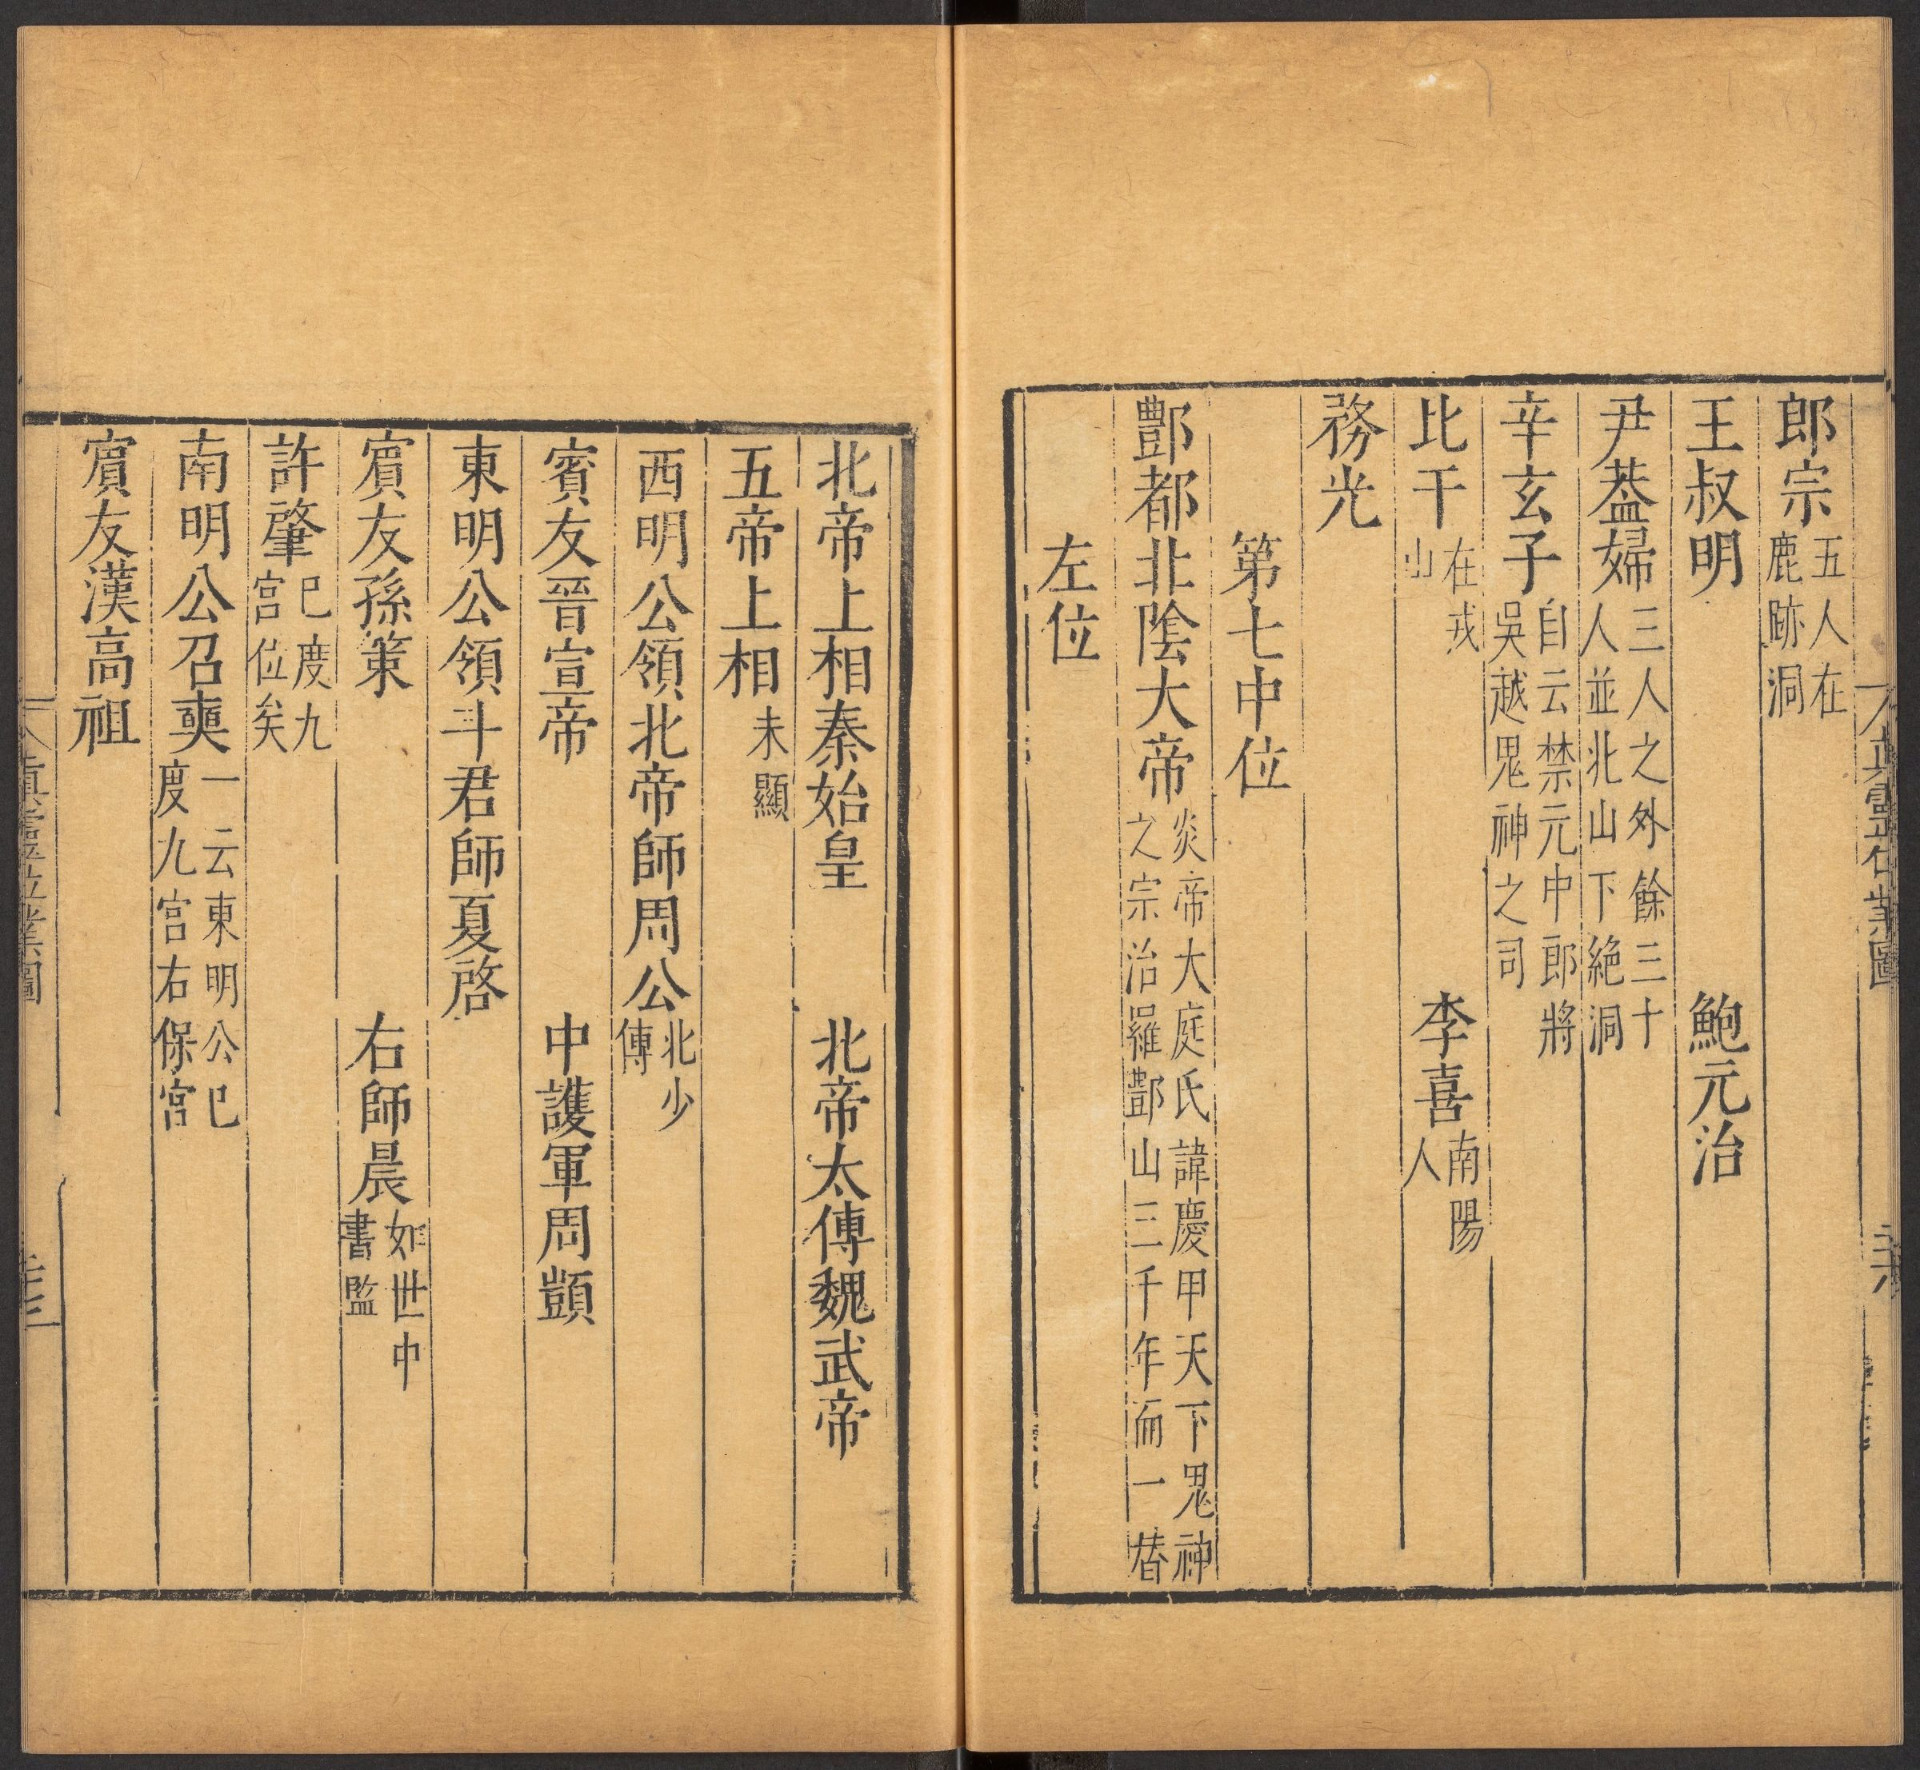 郎宗五人在鹿跡洞
王叔明　鮑元治
尹葢婦三人之外餘三十人並北山下絶洞
辛玄子自云禁元中郎將吳越鬼神之司
比干在戎山　李喜南陽人
務光
第七中位
酆都北陰大帝炎帝大庭氏諱慶甲天下鬼神之宗治羅酆山三千年而一替
左位
北帝上相秦始皇　北帝太傅魏武帝
五帝上相未顯
西明公領北帝師周公北少傅
賓友晉宣帝　中護軍周顗
東明公領斗君師夏啓
賓友孫策　右師晨如世中書監
許肇巳度九宮位矣
南明公召奭一云東明公巳度九宮右保宮
賓友漢高祖
真靈位業圖